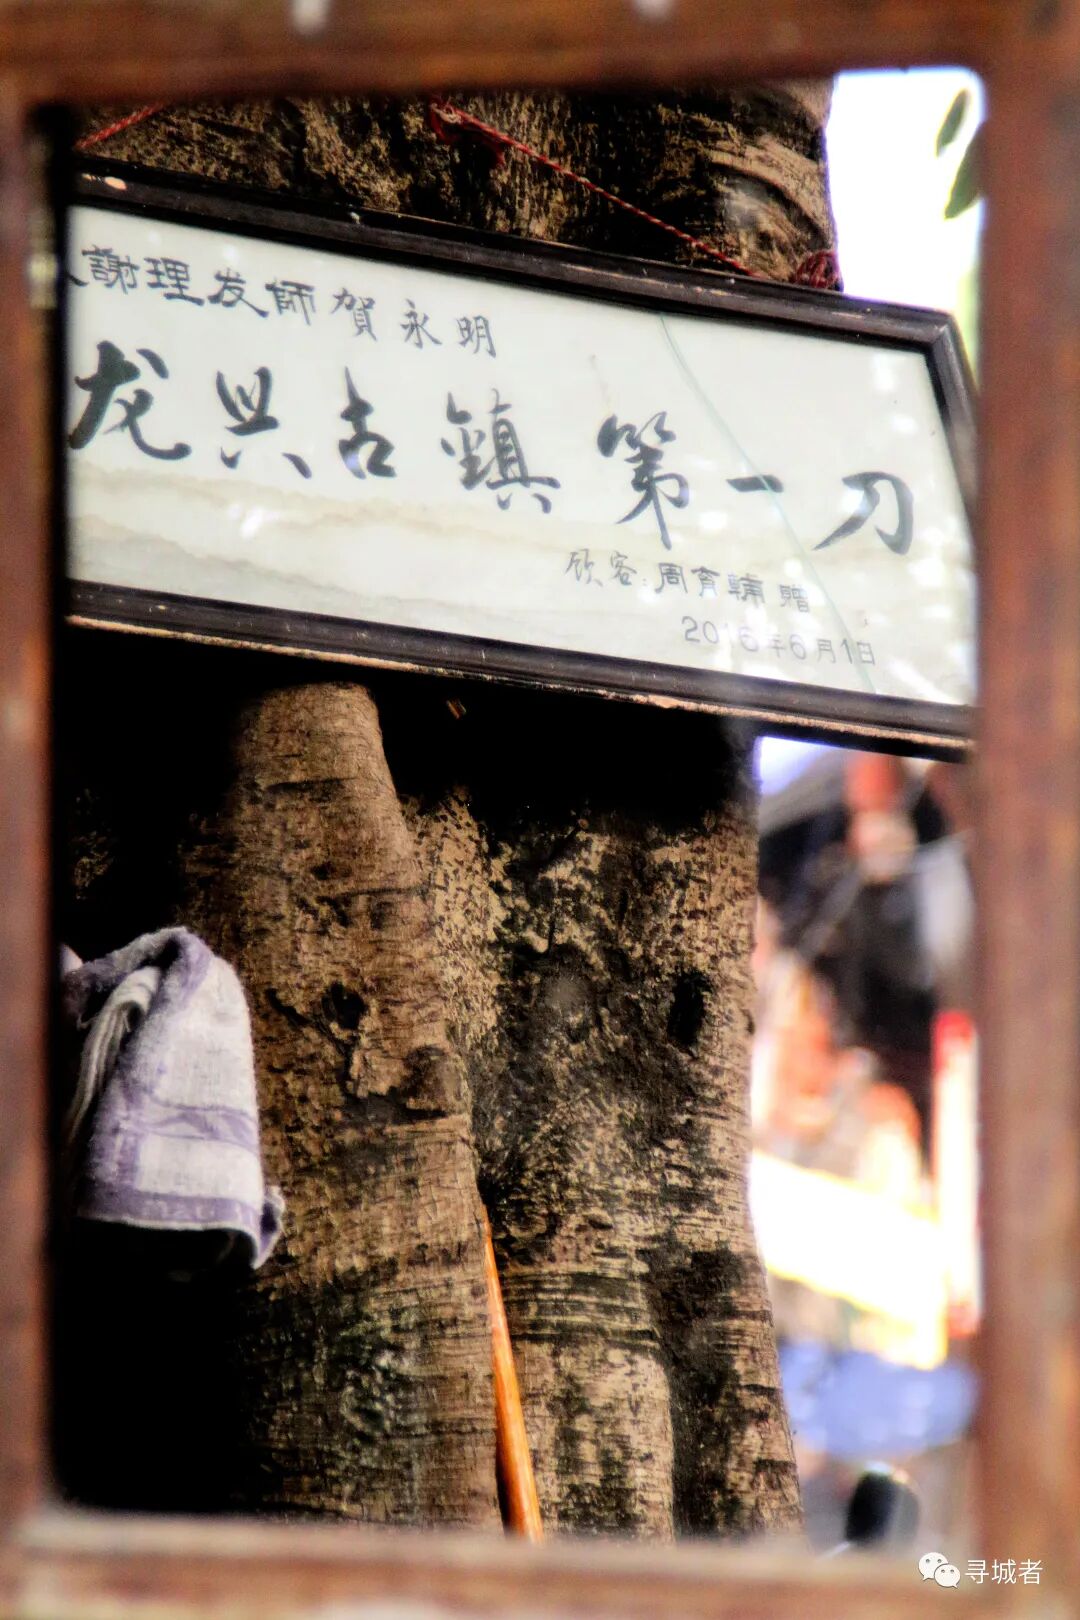 謝理发師賀永明
龙兴古鎮第一刀
顾客:周育輔贈
2016年6月1日
寻城者